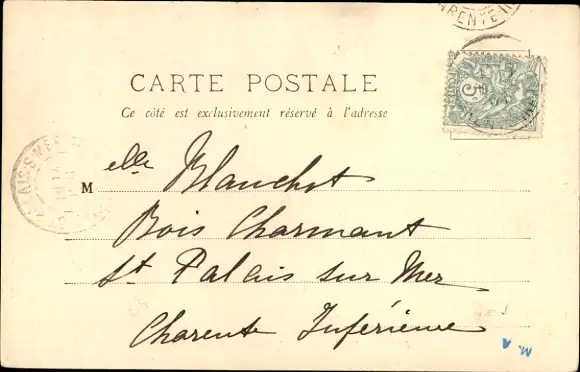 CARTE POSTALE
Ce côté est exclusivement réservé à l'adresse
Melle Blanchot
Bois Charmant
St Palais sur Mer
Charente Inférieure
5